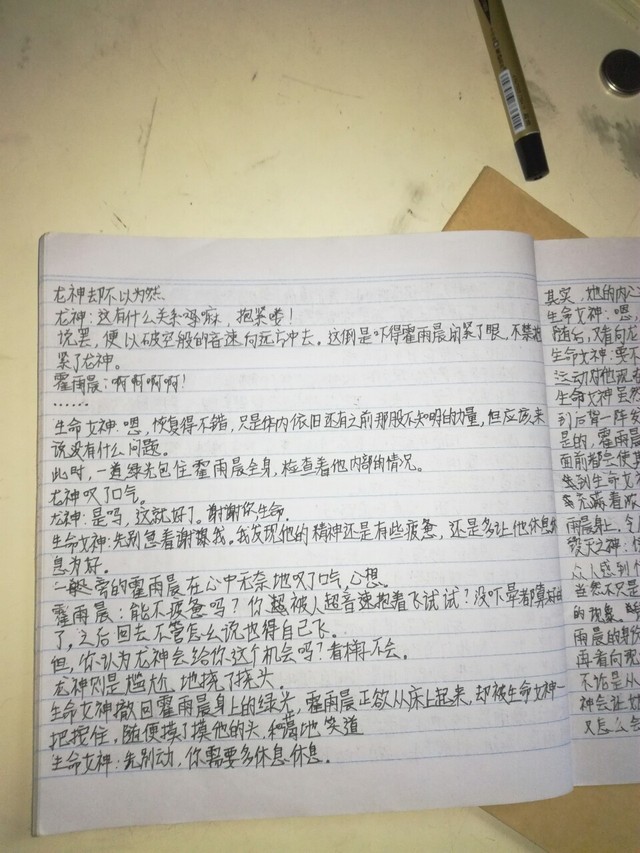 龙神却不以为然
龙神:这有什么关系嘛,抱紧喽!
说罢,便以破空般的音速向远方冲去。这倒是吓得霍雨晨闭紧了眼,不禁抱
紧了龙神。
霍雨晨:啊啊啊啊!
……
生命女神:嗯,恢复得不错,只是体内依旧还有之前那股不知明的力量,但应该来
说没有什么问题。
此时,一道绿光包住霍雨晨全身,检查着他内部的情况。
龙神叹了口气。
龙神:是吗,这就好了。谢谢你生命.
生命女神:先别急着谢我。我发现他的精神还是有些疲惫,还是多让他休息休
息为好。
一旁的霍雨晨在心中无奈地叹了口气,心想。
霍雨晨:能不疲惫吗?你被人超音速抱着飞试试?没吓晕都算
了,之后回去不管怎么说也得自己飞。
但,你认为龙神会给你这个机会吗?看样不会。
龙神则是尴尬地挠了挠头
生命女神撤回霍雨晨身上的绿光,霍雨晨正欲从床上起来,却被生命女神一
把按住,随便摸了摸他的头,和蔼地笑道
生命女神:先别动,你需要多休息休息。
其实,她的内心
生命女神:嗯,
随后,又看向龙
生命女神:要不
运动对他现在
生命女神虽然
到后背一阵发
是的,霍雨晨
面前都会使其
生到生命女神
充满着
雨晨身上,令
毁灭之神:
众人感到什
当然不只是
的现象。
雨晨的
再看向
不怕是从
神会让她
又怎么会